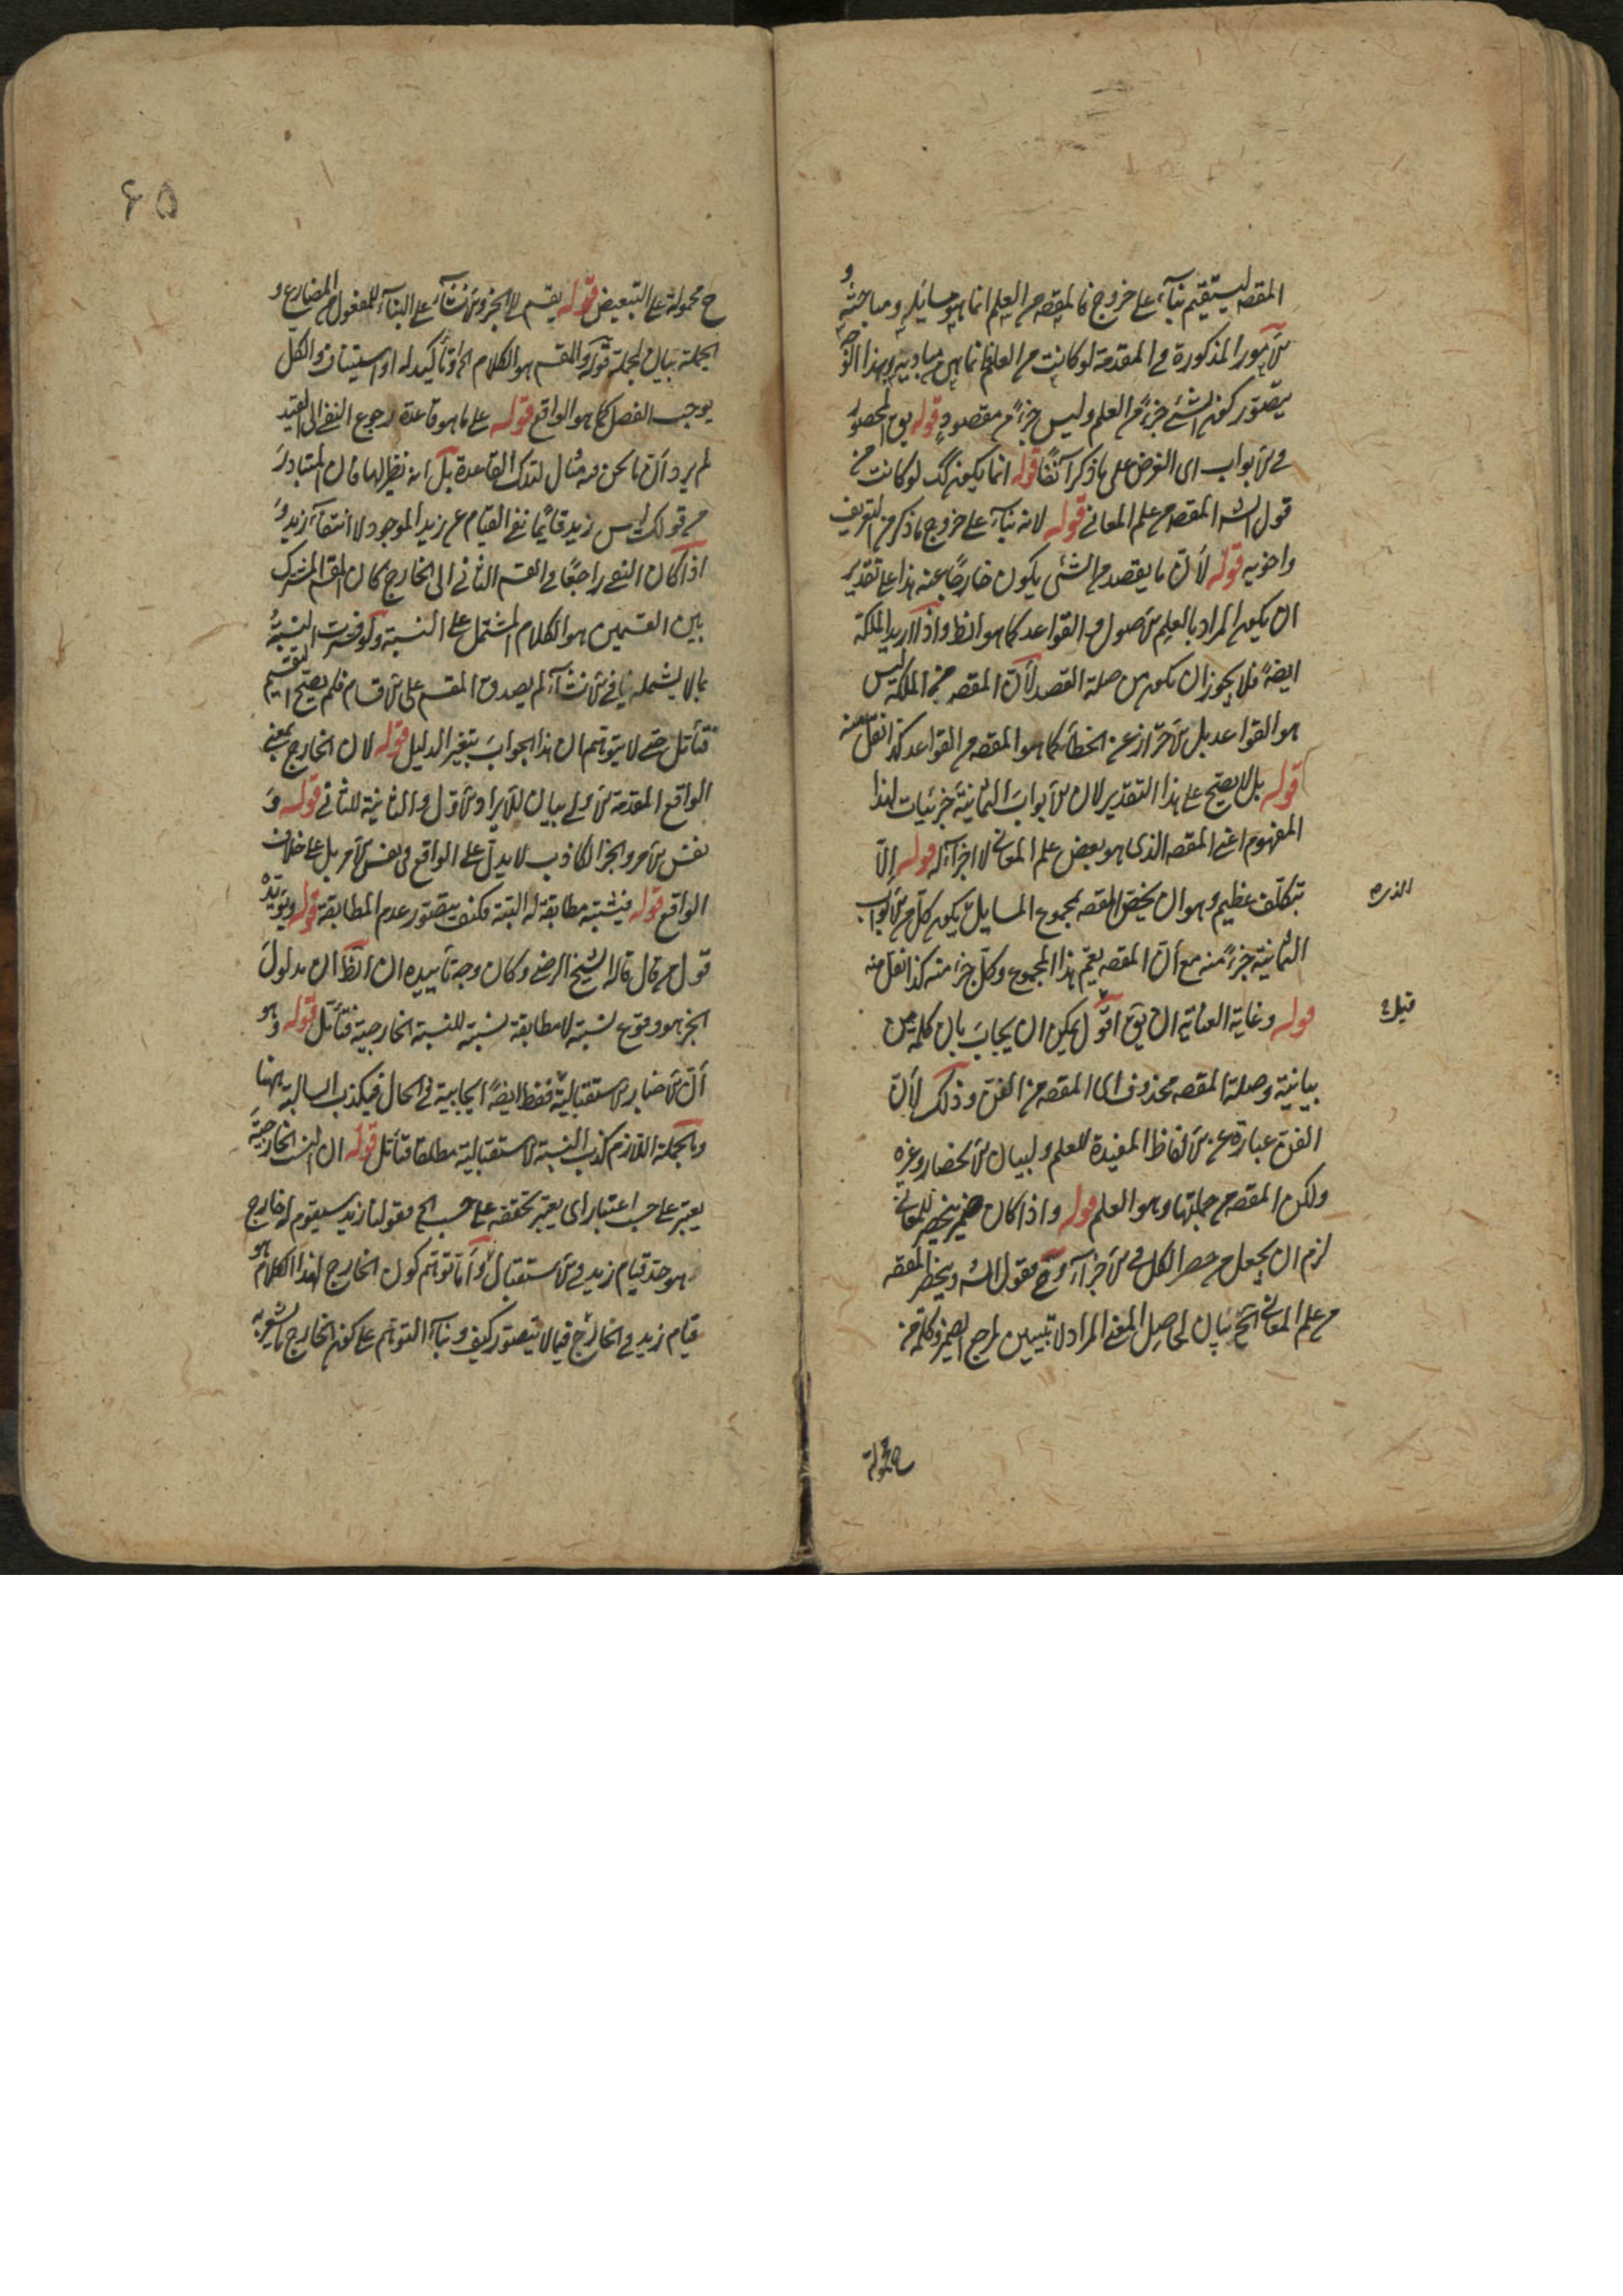 المقصه ليستقيم بناء على خروج فالمقصه من العلم انما هو مسائله ومباحثه و
الامور المذكورة في المقدمة لو كانت من العلم فانما هي من مباديه وبهذا
يتصور كون الشئ جزءً من العلم وليس جزءً من مقصوده قوله
في الابواب اى الغرض على ما ذكر آنفًا قوله انما يكون كك لو كانت من
قول الشه المقصه من علم المعاني قوله لانه بناء على خروج ما ذكر من التعريف
واخويه قوله لأن ما يقصد من الشئ يكون خارجًا عنه هذا على تقدير
ان يكون المراد بالعلم الاصول والقواعد كما هو الظ واذا اريد الملكة
ايضًا فلا يجوز ان يكون من صلة القصد لأن المقصه من الملكة ليس
هو القواعد بل الاحتراز عن الخطأ كما هو المقصه من القواعد كذا نقل منه
قوله بل لا يصح على هذا التقدير لان الابواب الثمانية جزئيات لهذا
المفهوم اعني المقصه الذى هو بعض علم المعاني لا اجزاء له قوله إلّا
بتكلّف عظيم وهو ان يخص المقصه بمجموع المسايل ليكون كل من الابواب
الثمانية جزءً منه مع أن المقصه يعم هذا المجموع وكل جزء منه كذا نقل منه
قوله وغاية العناية ان يق اقول يمكن ان يجاب بان كلمة من
بيانية وصلة المقصه محذوف اى المقصه من الفن وذلك لأن
الفن عبارة عن الالفاظ المفيدة للعلم ولبيان الانحصار وغيره
ولكن المقصه من جملتها وهو العلم قوله واذا كان ضمير ينحصر للمعاني
لزم ان يجعل من حصر الكل في الاجزاء وح فقول الشه وينحصر المقصه
من علم المعاني الخ بيان لحاصل المعنى المراد لا تبيين لمرجع الضمير وكلمة من
ح محمولة
۶۵
ح محمولة على التبعيض قوله يقسم الى الخبر والانشاء على البناء للمفعول من المضارع و
الجملة بيان لجملة قوله والمقسم هو الكلام الخ او تأكيد له او استيناف والكل
يوجب الفصل كما هو الواقع قوله على ما هو قاعدة رجوع النفى الى القيد
لم يرد أن ما نحن فيه مثال لتلك القاعدة بل انه نظير لها فان المتبادر
من قولك ليس زيد قائمًا نفى القيام عن زيد الموجود لا انتفاء زيد و
اذا كان النفى راجعًا في القسم الثاني الى الخارج كان المقسم المشترك
بين القسمين هو الكلام المشتمل على النسبة ولو فسرت النسبة
بما لا يشمله ما في الانشاء لم يصدق المقسم على الاقسام فلم يصح التقسيم
فتأمل حتى لا يتوهم ان هذا الجواب بتغير الدليل قوله لان الخارج بمعنى
الواقع المقدمة الاولى بيان للايراد الاول والثانية للثاني قوله و
نفس الامر والخبر الكاذب لا يدل على الواقع في نفس الامر بل على خلاف
الواقع قوله فنسبته مطابقة له البتة فكيف يتصور عدم المطابقة قوله ويؤيده
قول من قال قاله الشيخ الرضي وكان وجه تأييده ان الظ ان مدلول
الخبر هو وقوع نسبة لا مطابقة نسبته للنسبة الخارجية فتأمل قوله وهو
أن الاخبار الاستقبالية فقط ايضًا ايجابية في الحال فيكذب السالبة ههنا
وبالجملة اللازم كذب النسبة الاستقبالية مطلقا فتأمل قوله ان النسبة الخارجية
يعتبر على حسب اعتبار اى يعتبر تحققه على حسب الخ فقولنا زيد سيقوم له خارج
هو حد قيام زيد في الاستقبال وأما توهم كون الخارج لهذا الكلام هو
قيام زيد في الخارج فمما لا يتصور كيف وبناء التوهم على كون الخارج ما